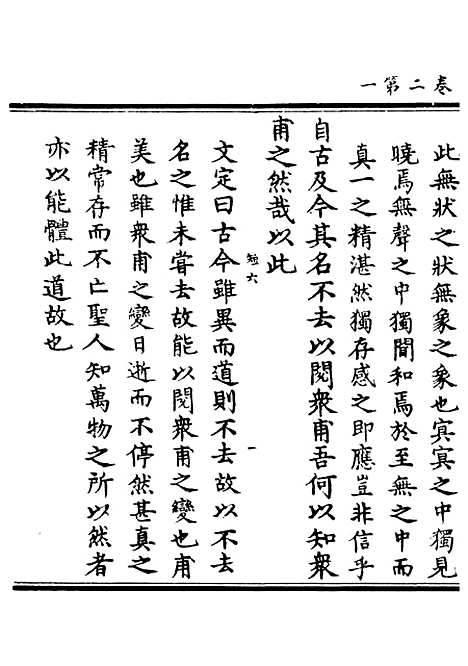 卷二第一
此無狀之狀無象之象也㝠㝠之中獨見
曉焉無聲之中獨聞和焉於至無之中而
真一之精湛然獨存感之即應豈非信乎
自古及今其名不去以閱衆甫吾何以知衆
甫之然哉以此
短六 一
文定曰古今雖異而道則不去故以不去
名之惟未甞去故能以閱衆甫之變也甫
美也雖衆甫之變日逝而不停然甚真之
精常存而不亡聖人知萬物之所以然者
亦以能體此道故也